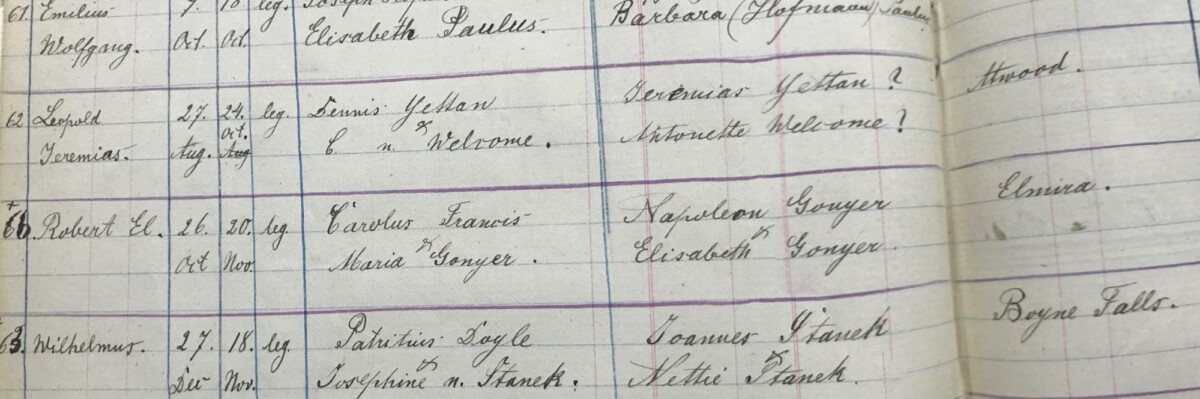 61. Emilius 7. 10 leg. Joseph
Barbara (Hofmann) Paulus
Wolfgang. Oct. Oct. Elisabeth Paulus.
62 Leopold 27. 24. leg. Dennis Yettan Jeremias Yettan ? Atwood.
Oct.
Jeremias. Aug. Aug C. n. Welcome. Antonette Welcome ?
Robert El. 26. 20. leg Carolus Francis Napoleon Gonyer Elmira.
Oct Nov. Maria Gonyer. Elisabeth Gonyer
63. Wilhelmus. 27. 18. leg. Patritius Doyle Joannes Stanek Boyne Falls.
Dec Nov. Josephine n. Stanek. Nettie Stanek.